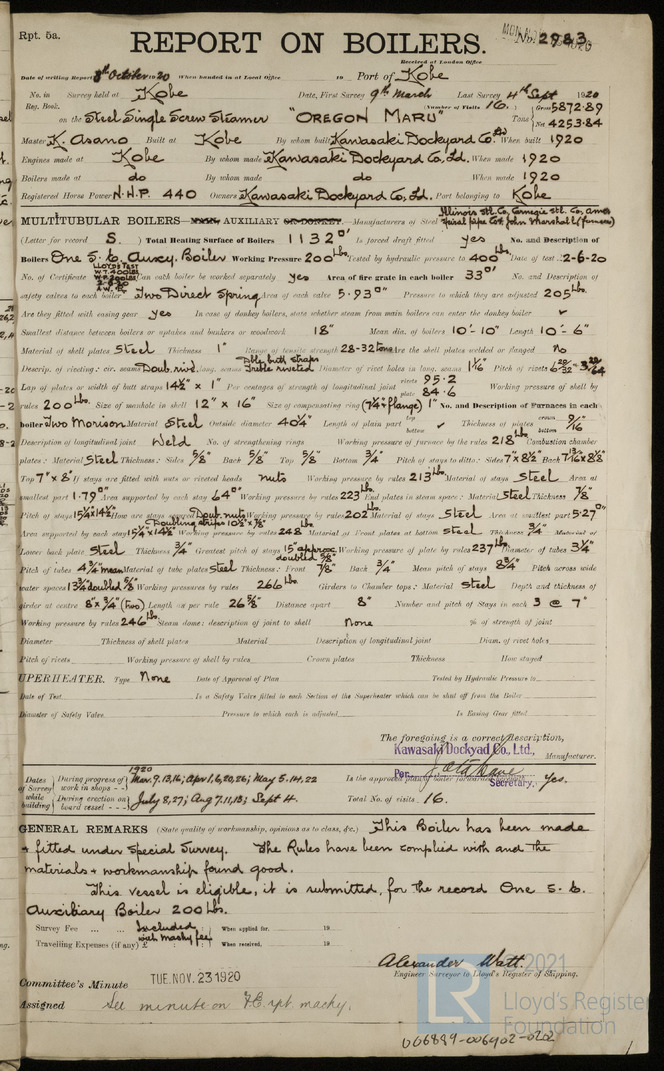 Rpt. 5a.
REPORT ON BOILERS.
No. 2983
Received at London Office
Date of writing Report 8th October 1920 When handed in at Local Office 19 Port of Kobe
No. in Survey held at Kobe Date, First Survey 9th March Last Survey 4th Sept 1920
Reg. Book. (Number of Visits 16.)
on the Steel Single Screw Steamer "OREGON MARU" Tons Gross 5872.89 Net 4253.84
Master K. Asano Built at Kobe By whom built Kawasaki Dockyard Co. Ltd When built 1920
Engines made at Kobe By whom made Kawasaki Dockyard Co, Ld. When made 1920
Boilers made at do By whom made do When made 1920
Registered Horse Power N.H.P. 440 Owners Kawasaki Dockyard Co, Ld. Port belonging to Kobe
MULTITUBULAR BOILERS MAIN, AUXILIARY OR DONKEY. Manufacturers of Steel Illinois Stl. Co, Carnegie Stl. Co, John Marshall (furnaces)
(Letter for record S.) Total Heating Surface of Boilers 1132□' Is forced draft fitted yes No. and Description of
Boilers One S. b. Auxy. Boiler Working Pressure 200 Lbs. Tested by hydraulic pressure to 400 Lbs. Date of test 2-6-20
LLOYD'S TEST
W.P. 200 LBS
2-6-20
A.W.
No. of Certificate Can each boiler be worked separately yes Area of fire grate in each boiler 33□' No. and Description of
safety valves to each boiler Two Direct Spring Area of each valve 5.93□" Pressure to which they are adjusted 205 Lbs.
Are they fitted with easing gear yes In case of donkey boilers, state whether steam from main boilers can enter the donkey boiler ✓
Smallest distance between boilers or uptakes and bunkers or woodwork 18" Mean dia. of boilers 10'-10" Length 10'-6"
Material of shell plates Steel Thickness 1" Range of tensile strength 28-32 tons Are the shell plates welded or flanged no
Descrip. of riveting: cir. seams Doub. rivd. long. seams Dble butt straps Treble riveted Diameter of rivet holes in long. seams 1 1/16 Pitch of rivets
Lap of plates or width of butt straps 14 1/2" x 1" Per centages of strength of longitudinal joint rivets 95.2 plate 84.6 Working pressure of shell by
rules 200 Lbs. Size of manhole in shell 12" x 16" Size of compensating ring (7 1/4 x flange) 1" No. and Description of Furnaces in each
boiler Two Morison Material Steel Outside diameter 40 1/4" Length of plain part top bottom ✓ Thickness of plates crown bottom 9/16"
Description of longitudinal joint Weld No. of strengthening rings Working pressure of furnace by the rules 218 Lbs. Combustion chamber
plates: Material Steel Thickness: Sides 5/8" Back 5/8" Top 5/8" Bottom 3/4" Pitch of stays to ditto: Sides 7" x 8 1/2" Back 7 7/16 x 8 5/8"
Top 7" x 8" If stays are fitted with nuts or riveted heads nuts Working pressure by rules 213 Lbs. Material of stays Steel Area at
smallest part 1.79□" Area supported by each stay 64□" Working pressure by rules 223 Lbs. End plates in steam space: Material Steel Thickness 7/8"
Pitch of stays 15 1/4 x 14 1/2" How are stays secured Doub. nuts Working pressure by rules 202 Lbs. Material of stays Steel Area at smallest part 5.27□"
Doubling strips 10 1/2 x 7/8"
Area supported by each stay 15 1/4 x 14 1/2 Working pressure by rules 248 Lbs. Material of Front plates at bottom Steel Thickness 3/4" Material of
Lower back plate Steel Thickness 3/4" Greatest pitch of stays 15" approx doubled 5/8" Working pressure of plate by rules 237 Lbs. Diameter of tubes 3 1/4"
Pitch of tubes 4 3/4" mean Material of tube plates Steel Thickness: Front 7/8" Back 3/4" Mean pitch of stays 8 3/4" Pitch across wide
water spaces 13 3/4 doubled 5/8" Working pressures by rules 266 Lbs. Girders to Chamber tops: Material Steel Depth and thickness of
girder at centre 8" x 3/4" (Two) Length as per rule 26 5/8" Distance apart 8" Number and pitch of Stays in each 3 @ 7"
Working pressure by rules 246 Lbs. Steam dome: description of joint to shell None % of strength of joint
Diameter Thickness of shell plates Material Description of longitudinal joint Diam. of rivet holes
Pitch of rivets Working pressure of shell by rules Crown plates Thickness How stayed
UPERHEATER. Type None Date of Approval of Plan Tested by Hydraulic Pressure to
Date of Test Is a Safety Valve fitted to each Section of the Superheater which can be shut off from the Boiler
Diameter of Safety Valve Pressure to which each is adjusted Is Easing Gear fitted
The foregoing is a correct description,
Kawasaki Dockyad Co., Ltd., Manufacturer.
Per. Secretary.
1920
Dates of Survey while building
During progress of work in shops - - Mar. 9, 13, 16; Apr 1, 6, 20, 26; May 5, 14, 22 Is the approved plan of boiler forwarded herewith yes.
During erection on board vessel - - - July 8, 27; Aug 7, 11, 13; Sept 4. Total No. of visits 16.
GENERAL REMARKS (State quality of workmanship, opinions as to class, &c.) This Boiler has been made
+ fitted under Special Survey. The Rules have been complied with and the
materials + workmanship found good.
This vessel is eligible, it is submitted, for the record One S. b.
Auxiliary Boiler 200 Lbs.
Survey Fee ... ... Included When applied for, 19
with machy fee
Travelling Expenses (if any) £ When received, 19
Alexander Watt.
Engineer Surveyor to Lloyd's Register of Shipping.
Committee's Minute TUE. NOV. 23 1920
Assigned See minute on F.E. rpt machy.
2021
LR
Lloyd's Register
Foundation
006899-006902-0202